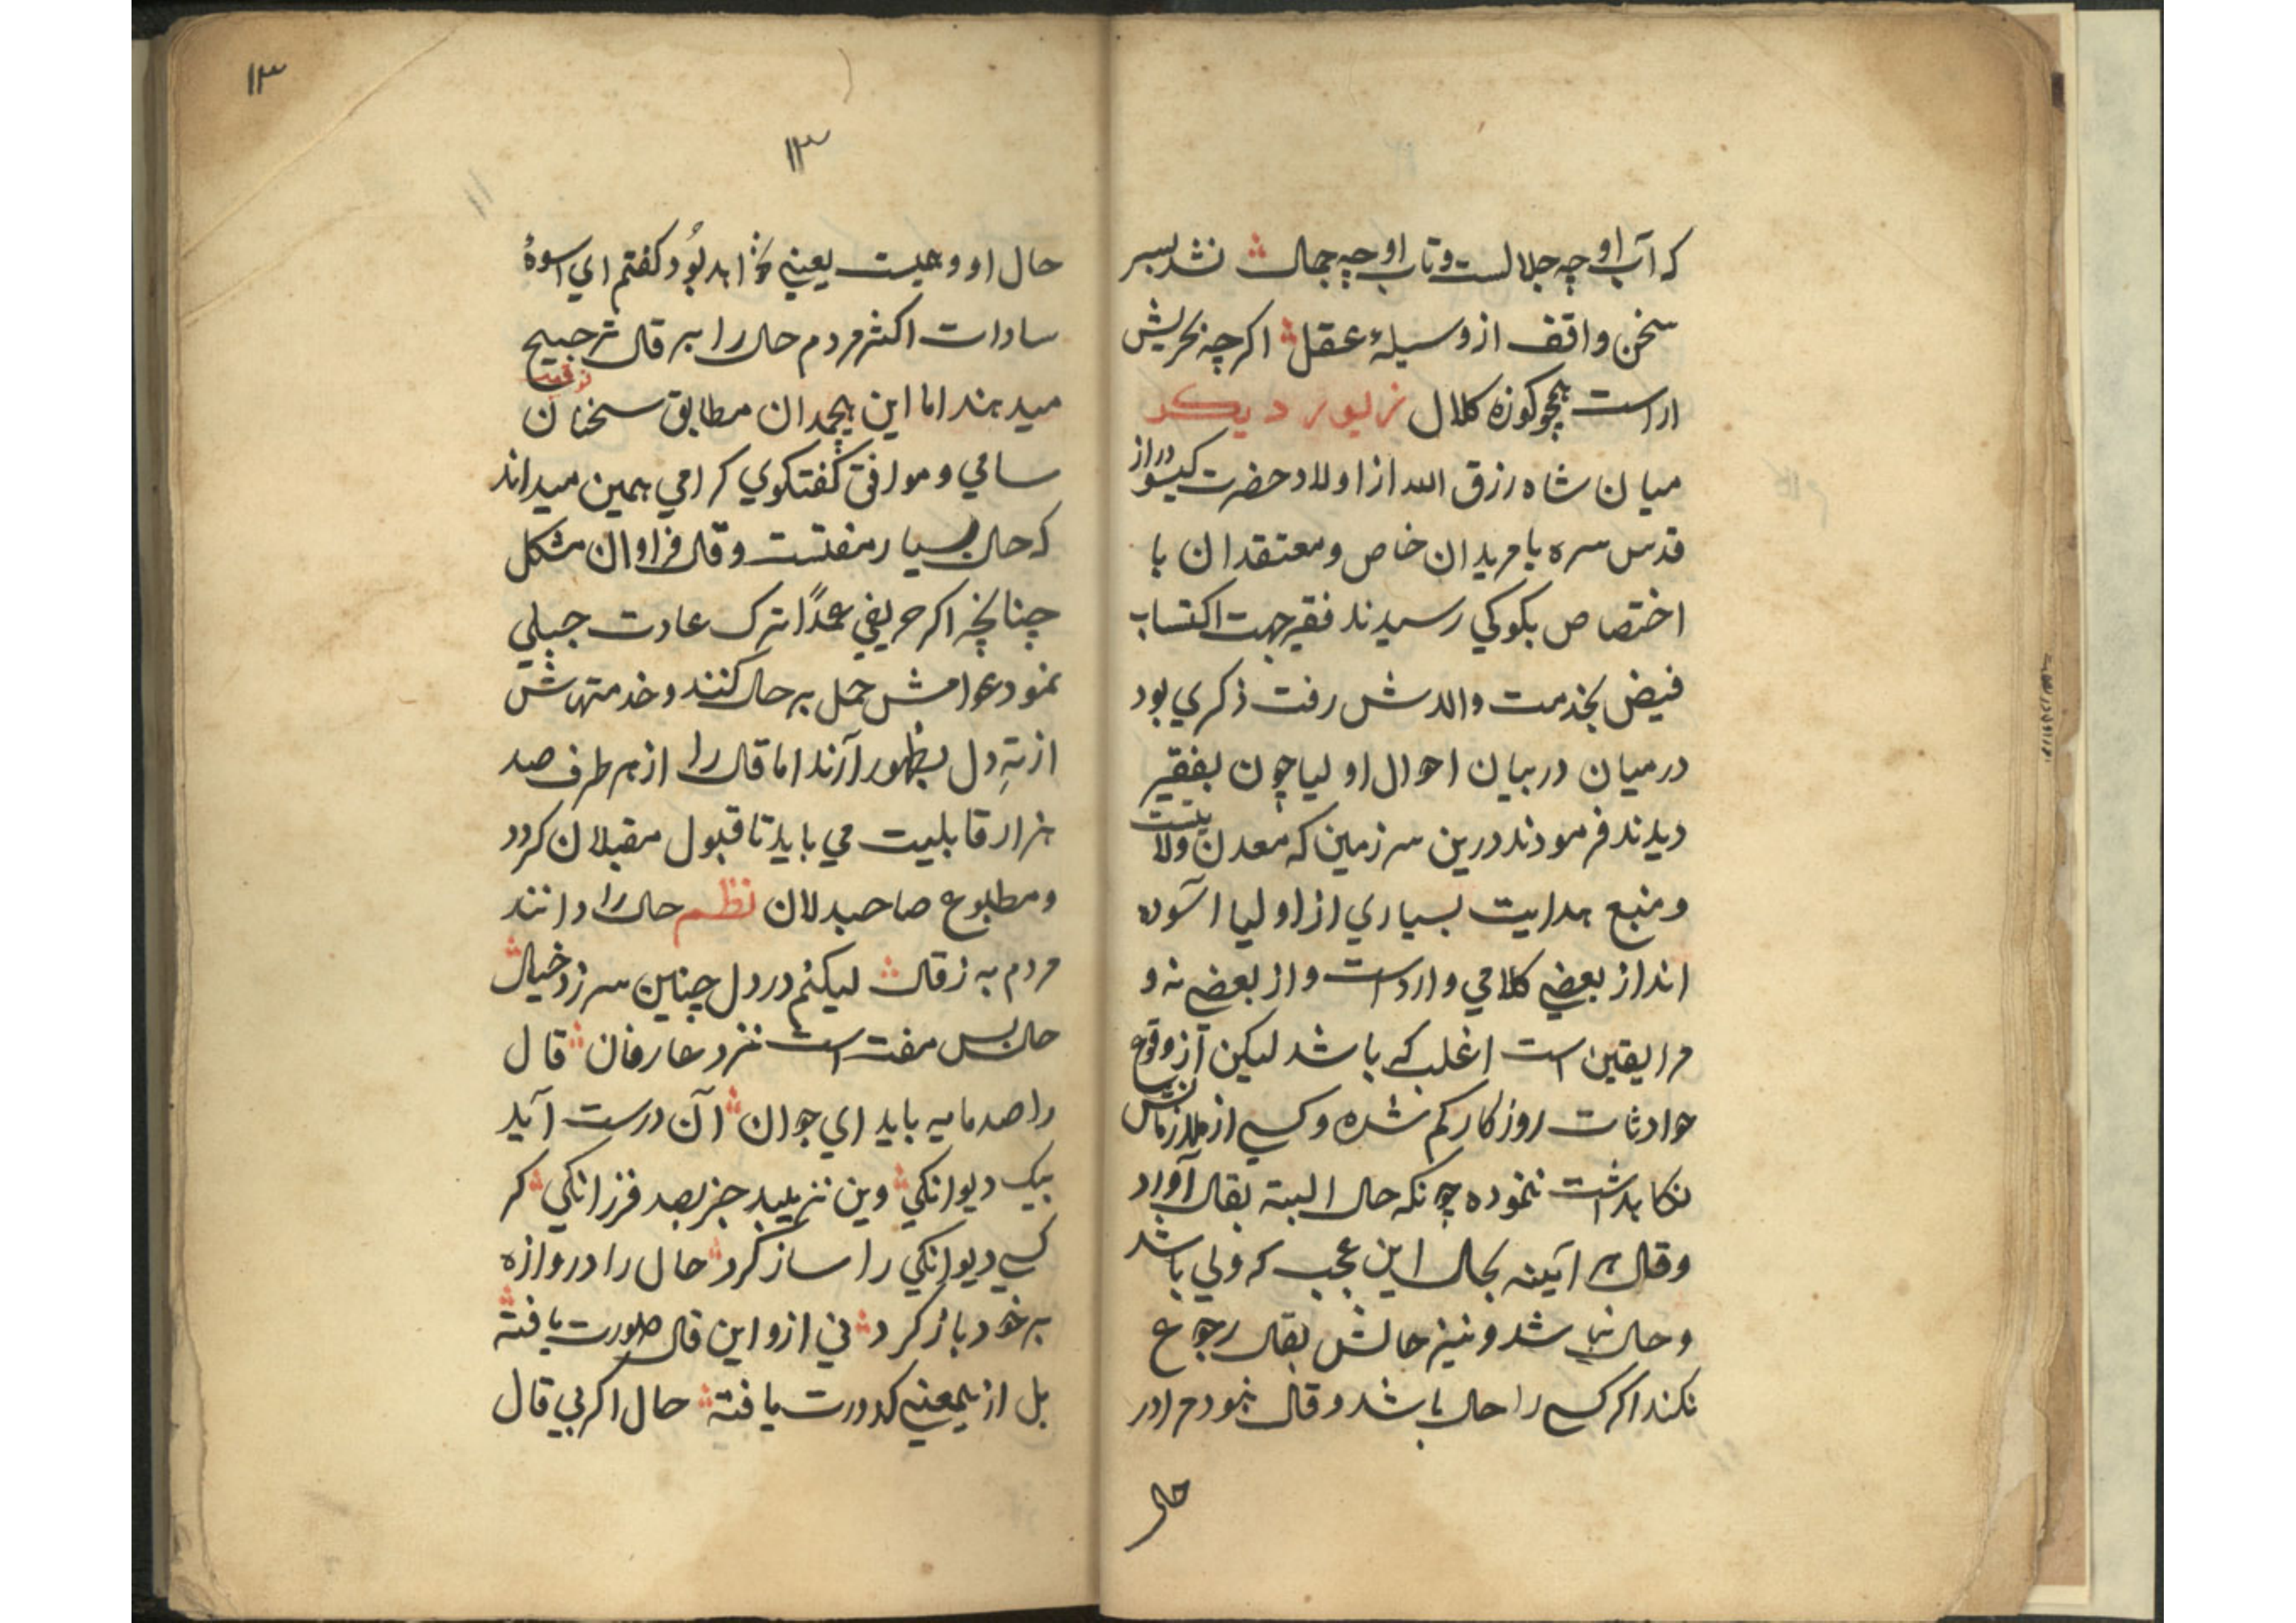 که آب او چه جلالست و تاب او چه جمال نشد بسر
سخن واقف از وسیلهٔ عقل اکرچه نحریش
اراست همچو کوزه کلال زیور دیکر
میان شاه رزق الله از اولاد حضرت کیسو دراز
قدس سره با مریدان خاص و معتقدان با
اختصاص بکوکي رسیدند فقیر جهت اکتساب
فیض بخدمت والدش رفت ذکري بود
درمیان دربیان احوال اولیا چون بفقیر
دیدند فرمودند درین سرزمین که معدن ولایتست
و منبع هدایت بسیاري از اولیا آسوده
اند از بعضي کلامي وارداست و از بعضي نه و
مرا یقین است اغلب که باشد لیکن از وقوع
حوادثات روزکار کم شده و کسي از ملازمانش
نکاهداشت ننموده چونکه حال البته بقال آورد
و قال هر آیینه بحال این عجب که ولي باشد
و حال نباشد و نیز حالش بقال رجوع
نکند اکر کسي را حال باشد و قال نبود مرا در
حال
۱۳
۱۳
حال او وهیست یعني نخواهد بود کفتم اي اسوهٔ
سادات اکثر مردم حال را بر قال ترجیح
میدهند اما این هیچمدان مطابق سخنان
سامي و موافق کفتکوي کرامي همین میداند
که حال بسیار مفتست و قال فراوان مشکل
چنانچه اکر حریفي عمداً ترک عادت جبلي
نمود عوامش حمل بر حال کنند و خدمتهاش
از تهِ دل بظهور آرند اما قال را از هر طرف صد
هزار قابلیت مي باید تا قبول مقبلان کردد
و مطبوع صاحبدلان نظم حال را دانند
مردم به ز قال لیکنم در دل چنین سر زد خیال
حال بس مفت است نزد عارفان قال
را صد مایه باید اي جوان آن درست آید
بیک دیوانکي وین نزیبد جز بصد فرزانکي کر
کسي دیوانکي را ساز کرد حال را دروازه
بر خود باز کرد ني ازو این قال صورت یافته
بل از یمعني کدورت یافته حال اکر بي قال